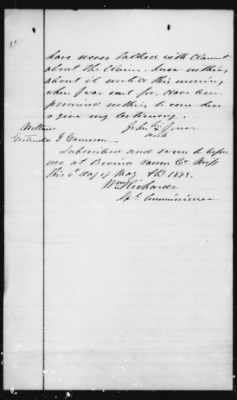 have never talked with Claimant
about the Claim. Knew nothing
about it until this morning
when I was sent for. Have been
promised nothing to come here
& give my testimony.
Witness John his Jones
Gertrude F Cameron mark
Subscribed and sworn to before
me at Bovina Warren Co Miss
this 6 day of May AD 1873.
Wm Richards
Spl Commissioner